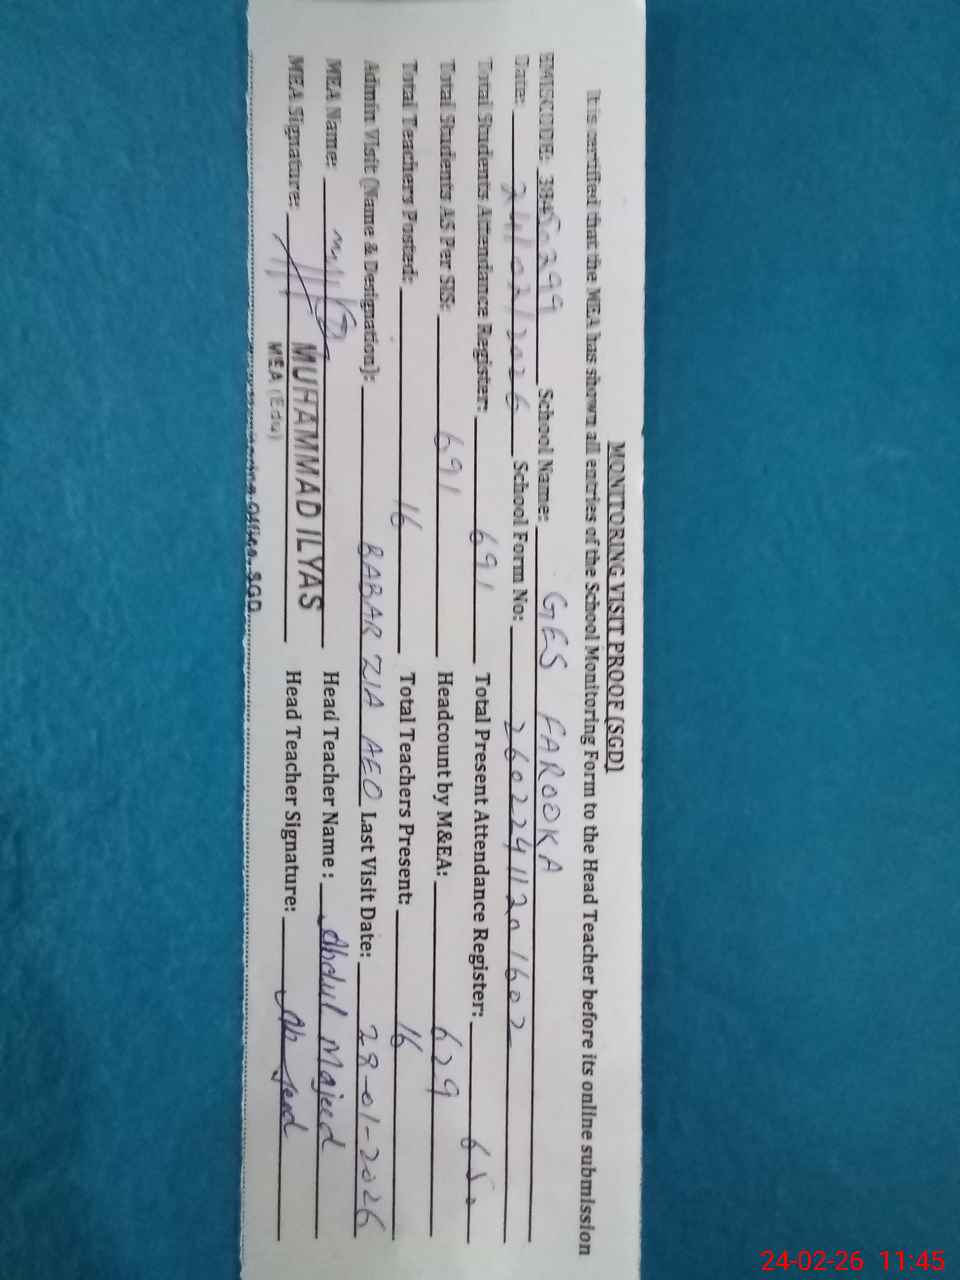 MONITORING VISIT PROOF (SGD)
It is certified that the MEA has shown all entries of the School Monitoring Form to the Head Teacher before its online submission
EMISCODE: 38450299 School Name: GES FAROOKA
Date: 24/02/2026 School Form No:
Total Students Attendance Register: 691 Total Present Attendance Register: 650
Total Students AS Per SIS: 691 Headcount by M&EA: 629
Total Teachers Posted: 16 Total Teachers Present: 16
Admin Visit (Name & Designation): BABAR ZIA AEO Last Visit Date: 28-01-2026
MEA Name: Head Teacher Name: Abdul Majeed
MEA Signature: MUHAMMAD ILYAS Head Teacher Signature:
MEA (Edu)
Office, SGD
24-02-26 11:45